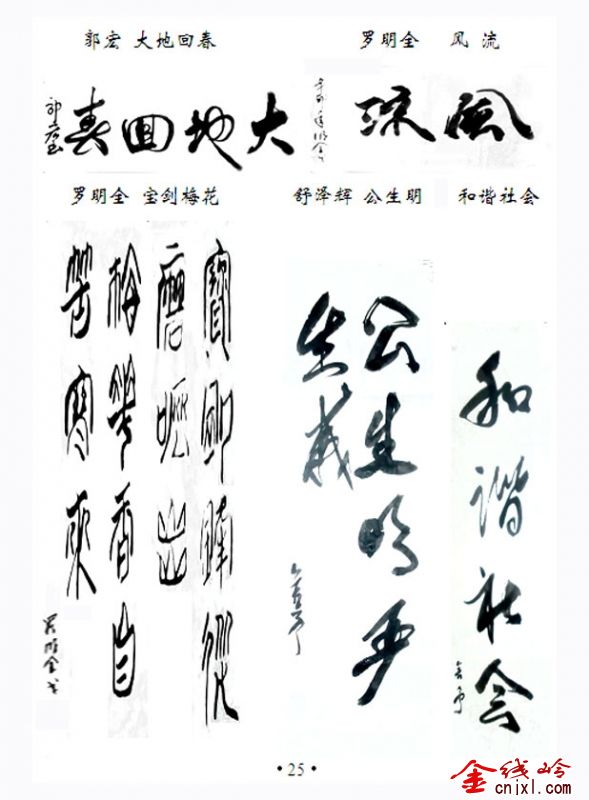 郭宏 大地回春
罗明全 风 流
大地回春
郭宏
風流
罗明全 宝剑梅花
舒泽辉 公生明
和谐社会
寶劍鋒從
磨礪出
梅花香自
苦寒來
羅明全书
公生明严
生威
和谐社会
• 25 •
金线岭
cnjxl.com